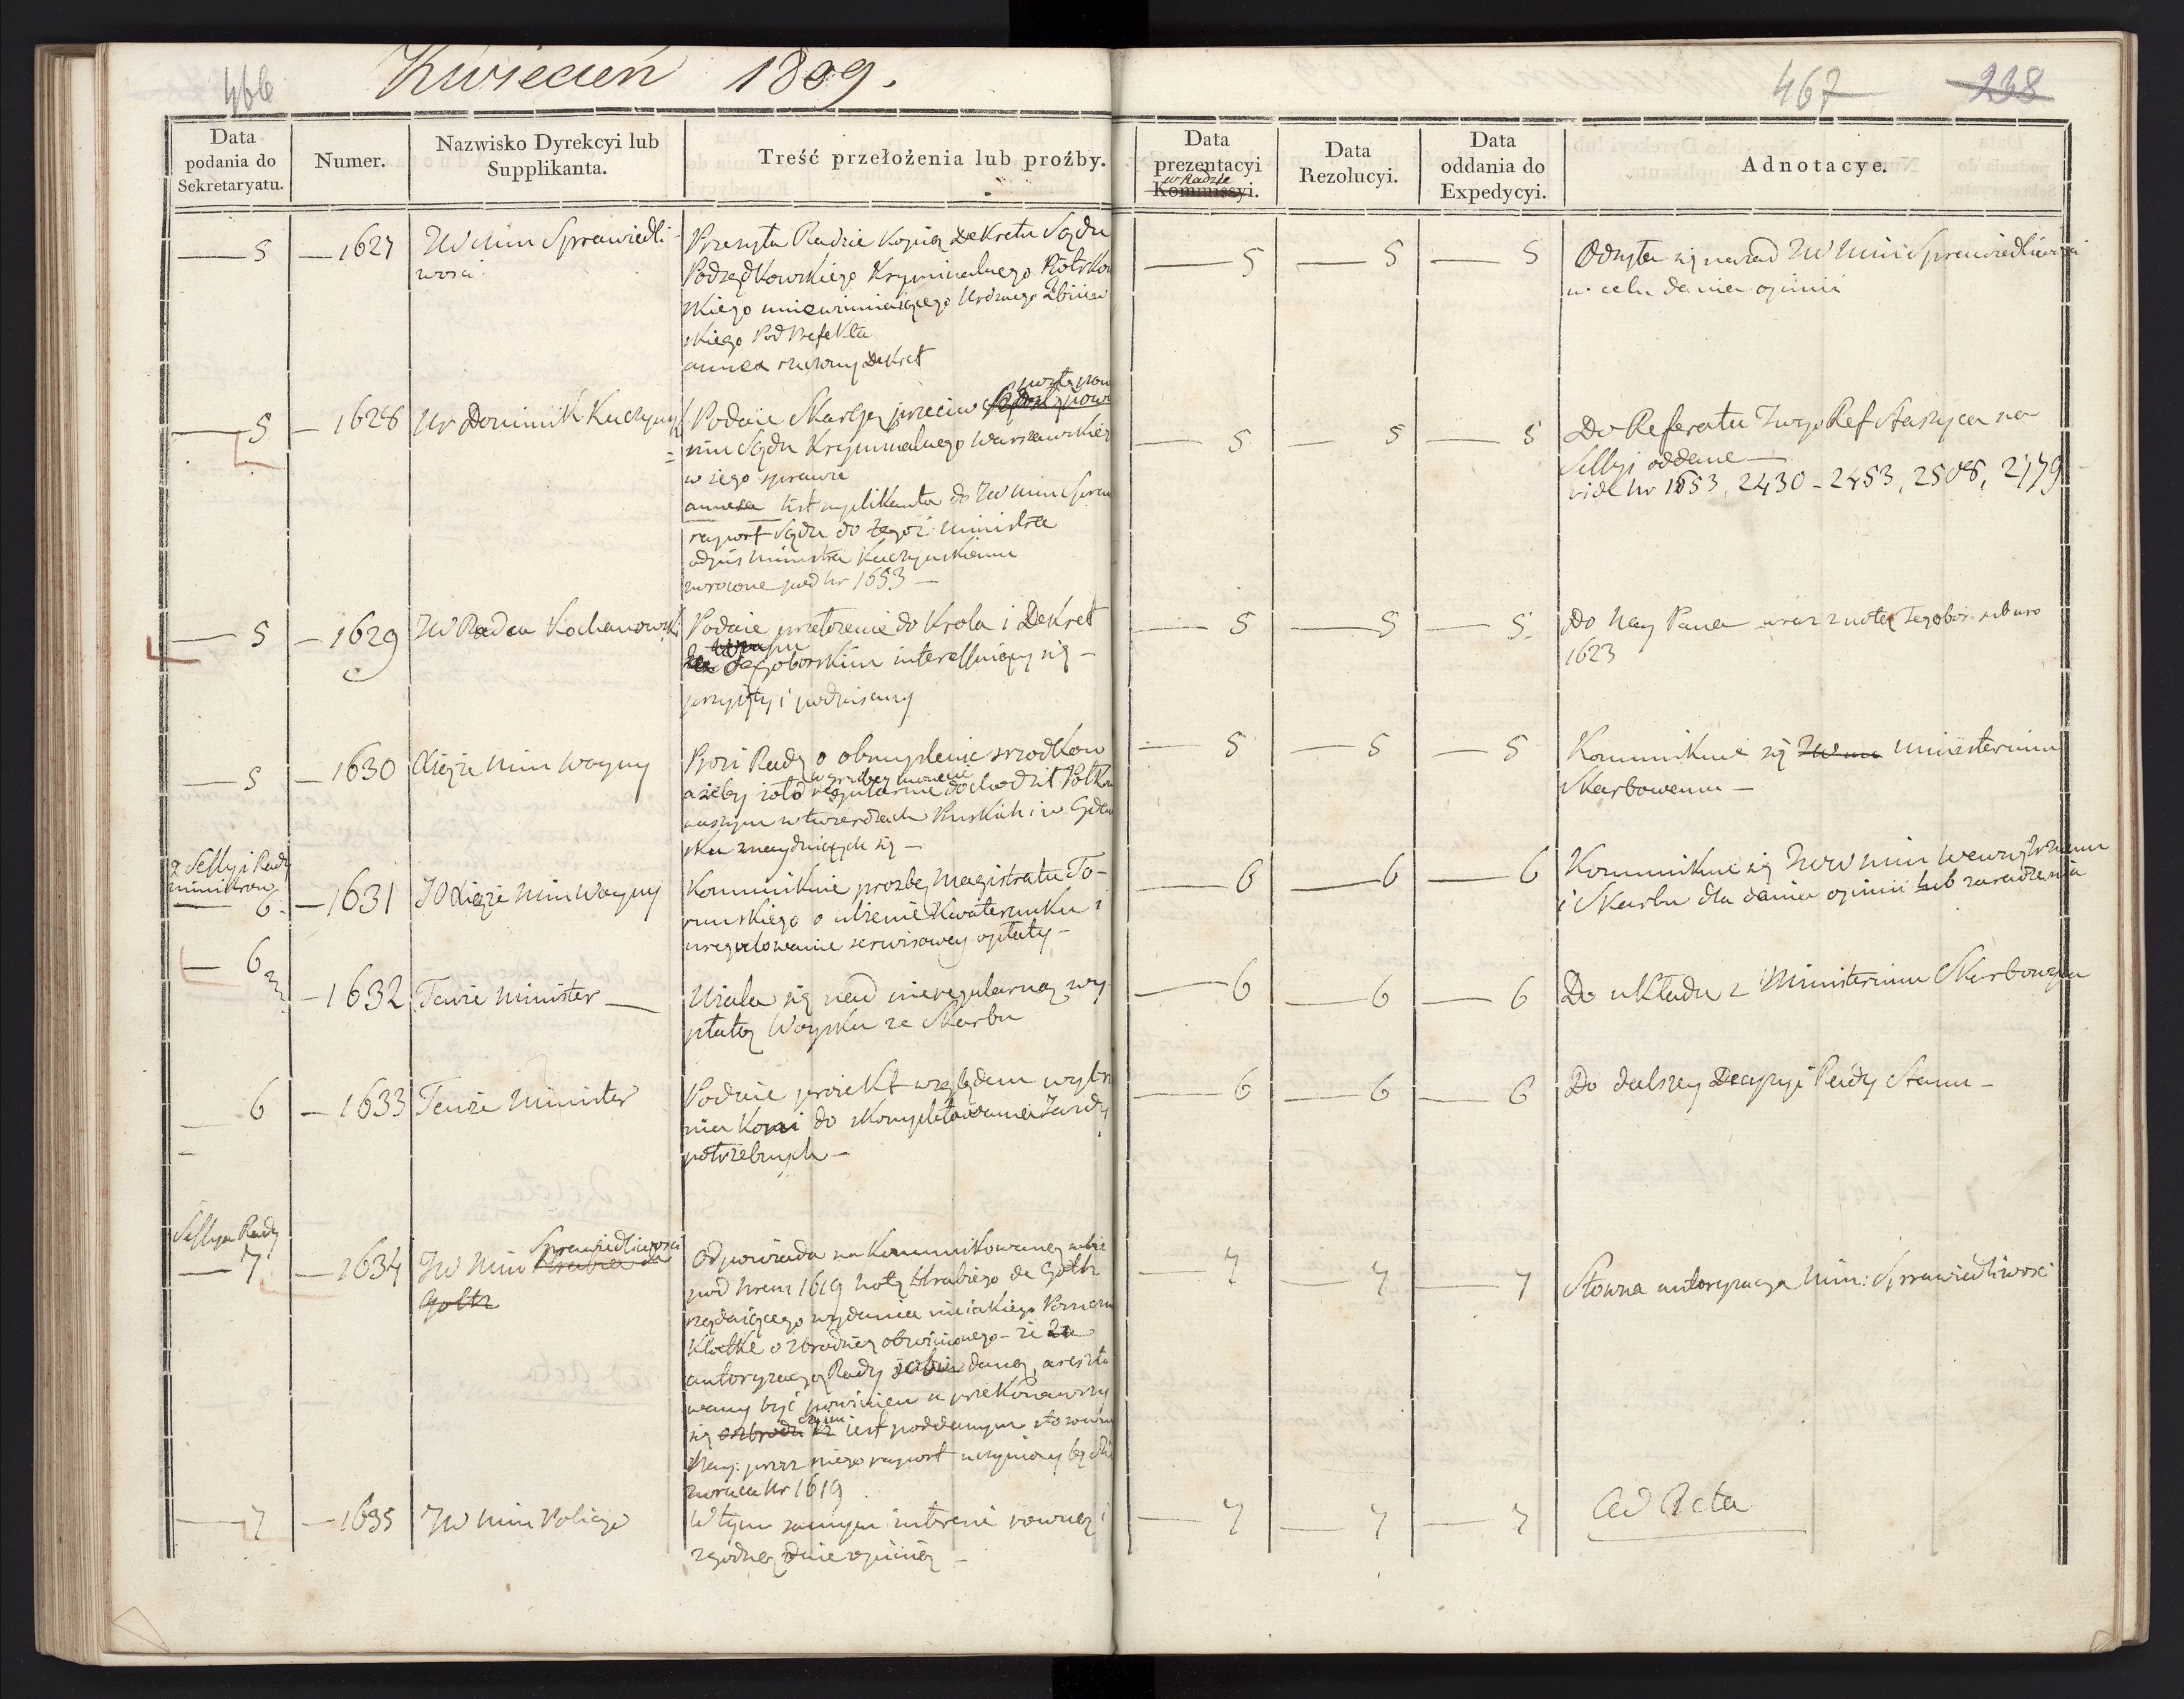 466
Kwiecień 1809.
467
238
Data podania do Sekretaryatu.
Numer.
Nazwisko Dyrekcyi lub Supplikanta.
Treść przełożenia lub proźby.
Data prezentacyi w Radzie Kommissyi.
Data Rezolucyi.
Data oddania do Expedycyi.
Adnotacye.
— 5 — 1627 JW Min Sprawiedli-
wosci
Przesyła Radzie kopią Dekretu Sądu
Podsędkowskiego Kryminalnego Piotrkow
skiego uniewinniaiącego Urodznego Zbiiew
skiego Pod Prefekta
annex rzeczony Dekret
— 5 — 5 — 5
Odsyła się nazad JW Min Sprawiedliwości
w celu dania opinii
— 5 — 1628 Ur Dominik Kuczyński
Podaie Skargę przeciw postanow
niu Sądu Kryminalnego Warszawskieg
w iego sprawie
annexa list suplikanta do JW Min Spraw
raport Sądu do tegoż Ministra
odpis Ministra Kuczynskiemu
zwrócone pod Nr 1653 —
— 5 — 5 — 5
Do Referatu Jwgo Ref Staszyca na
Sessyi oddane —
vide Nr 1653, 2430 - 2453, 2508, 2179
— 5 — 1629 JW Radca Kochanowski
Podaie przełożenie do Krola i Dekret
Tegoborskim interessuiący się —
przyięty i podpisany
— 5 — 5 — 5
Do Nay Pana wraz z notą Tegobor. sub nro
1623
— 5 — 1630 Xiąże Min Woyny
Prosi Rady o obmyslenie srzodkow
w grubey monecie
ażeby żołd regularnie dochodził Półkom
naszym w twierdzach Pruskich i w Gdan
sku znayduiących się —
— 5 — 5 — 5
Kommunikuie się Ministerium
Skarbowemu —
z Sessyi Rady
Ministrow
— 6 — 1631 JO Xiąże Min Woyny
Kommunikuie prozbę Magistratu To-
runskiego o ulżenie Kwaterunku i
uregulowanie serwisowey opłaty —
— 6 — 6 — 6
Kommunikuie się JWW Min Wewnętrznemu
i Skarbu dla dania opinii lub zaradzenia
— 6 — 1632 Tenże Minister —
Użala się nad nieregularną wy
płatą Woysku ze Skarbu
— 6 — 6 — 6
Do układu z Ministerium Skarbowym
— 6 — 1633 Tenże Minister
Podaie proiekt względem wybra
nia koni do skompletowania Jazdy
potrzebnych —
— 6 — 6 — 6
Do dalszey Decyzyi Rady Stanu —
Sessya Rady
— 7 — 1634 JW Min Sprawiedliwosci
Goltz
Odpowiada na kommunikowaną sobie
pod Nrem 1619 notę Hrabiego de Goltz
żądaiącego wydania nieiakiego
Klatke o zbrodnię obwinionego — że
autoryzacyą Rady daną, areszto
wany być powinien a przekonawszy
się czyim iest poddanym stosown
przez niego raport uczyniony będzie
zwraca Nr 1619
— 7 — 7 — 7
Słowna autoryzacya Min: Sprawiedliwosci
— 7 — 1635 JW Min Policyi
W tym samym interesie rowną i
zgodną daie opinią —
— 7 — 7 — 7
Ad Acta